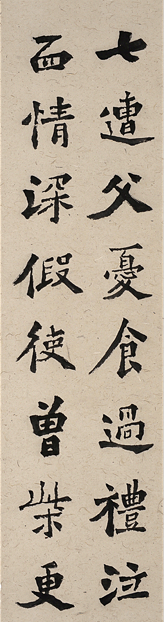 七遭父憂食過禮泣
而情深假使曾柴更